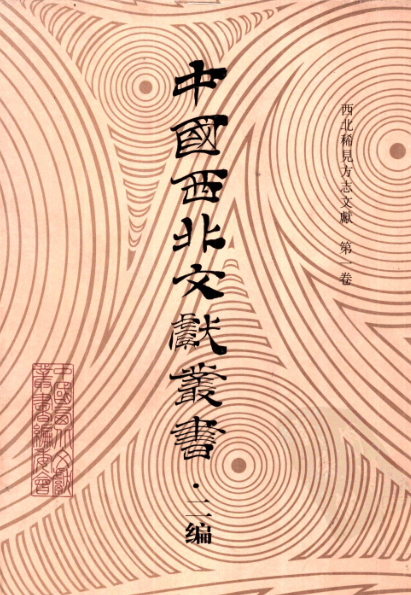 西北稀見方志文獻 第一卷
中國西北文獻叢書·二编
中國西北文獻
叢書編委會